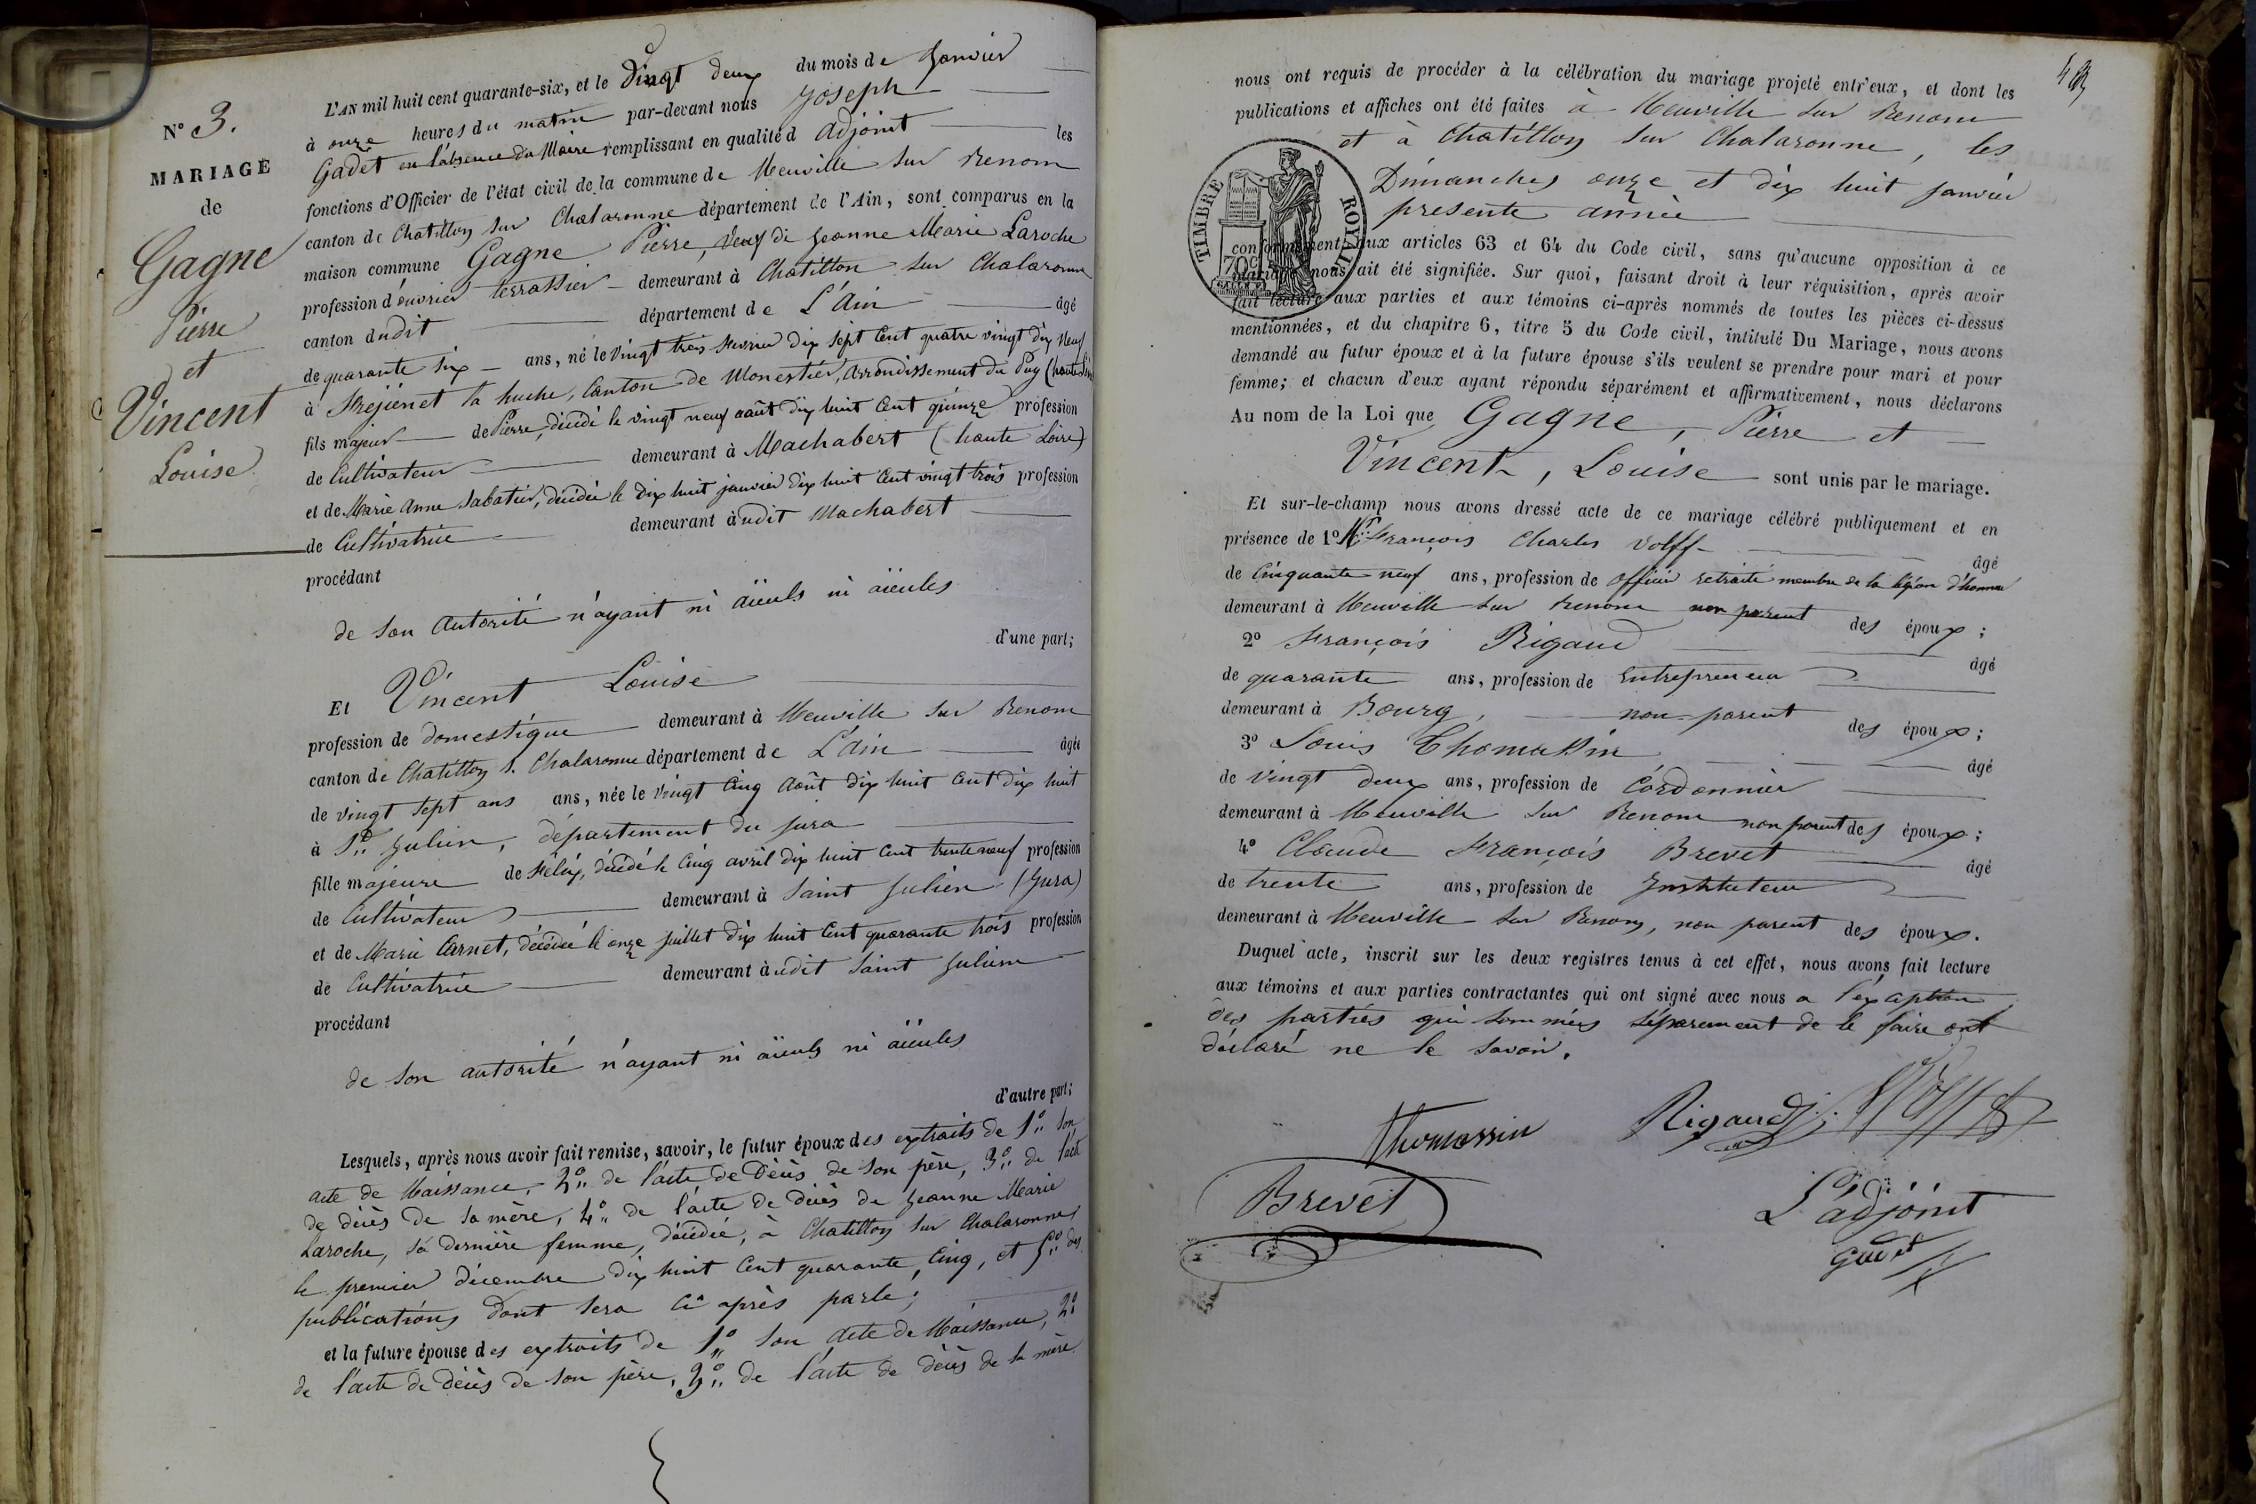 N° 3.
MARIAGE
de
Gagne
Pierre
et
Vincent
Louise
L'AN mil huit cent quarante-six, et le Vingt deux du mois de Janvier
à onze heures du matin par-devant nous Joseph
Gadet en l'absence du Maire remplissant en qualité d'adjoint les
fonctions d'Officier de l'état civil de la commune de Neuville sur Renom
canton de Chatillon sur Chalaronne département de l'Ain, sont comparus en la
maison commune Gagne Pierre, Veuf de Jeanne Marie Laroche
profession d'ouvrier terrassier demeurant à Chatillon sur Chalaronne
canton dudit département de L'Ain âgé
de quarante six ans, né le vingt trois fevrier dix sept cent quatre vingt dix neuf
à la huche, Canton de Monestier, arrondissement du Puy
fils majeur de Pierre, décédé le vingt neuf août dix huit cent quinze profession
de Cultivateur demeurant à Machabert (haute Loire)
et de Marie Anne Sabatier, décédée le dix huit janvier dix huit cent vingt trois profession
de Cultivatrice demeurant audit Machabert
procédant
de son autorité n'ayant ni aïeuls ni aïeules
d'une part;
Et Vincent Louise
profession de domestique demeurant à Neuville sur Renom
canton de Chatillon s. Chalaronne département de L'Ain âgée
de vingt sept ans ans, née le vingt cinq Août dix huit cent dix huit
à St. Julien, département du Jura
fille majeure de Félix, décédé le cinq avril dix huit cent trente neuf profession
de Cultivateur demeurant à Saint Julien (Jura)
et de Marie Carnet, décédée le onze juillet dix huit cent quarante trois profession
de Cultivatrice demeurant audit Saint Julien
procédant
de son autorité n'ayant ni aïeuls ni aïeules
d'autre part;
Lesquels, après nous avoir fait remise, savoir, le futur époux des extraits de 1° son
acte de Naissance, 2° de l'acte de décès de son père, 3° de l'acte
de décès de sa mère, 4° de l'acte de décès de Jeanne Marie
Laroche, sa dernière femme, décédée, à Chatillon sur Chalaronne,
le premier décembre dix huit cent quarante cinq, et 5° des
publications dont sera ci après parlé;
et la future épouse des extraits de 1° son acte de Naissance, 2°
de l'acte de décès de son père, 3° de l'acte de décès de sa mère
nous ont requis de procéder à la célébration du mariage projeté entr'eux, et dont les
publications et affiches ont été faites à Neuville sur Renom
et à Chatillon sur Chalaronne, les
Dimanches onze et dix huit janvier
presente année
TIMBRE ROYAL
70c
conformément aux articles 63 et 64 du Code civil, sans qu'aucune opposition à ce
mariage nous ait été signifiée. Sur quoi, faisant droit à leur réquisition, après avoir
fait lecture aux parties et aux témoins ci-après nommés de toutes les pièces ci-dessus
mentionnées, et du chapitre 6, titre 5 du Code civil, intitulé Du Mariage, nous avons
demandé au futur époux et à la future épouse s'ils veulent se prendre pour mari et pour
femme; et chacun d'eux ayant répondu séparément et affirmativement, nous déclarons
Au nom de la Loi que Gagne, Pierre et
Vincent, Louise sont unis par le mariage.
Et sur-le-champ nous avons dressé acte de ce mariage célébré publiquement et en
présence de 1° Mr. François Charles Volff âgé
de Cinquante neuf ans, profession de officier retraité membre de la légion d'honneur
demeurant à Neuville sur Renom non parent des époux;
2° François Rigaud âgé
de quarante ans, profession de Entrepreneur
demeurant à Bourg, non parent des époux;
3° Louis Thomassin âgé
de vingt deux ans, profession de Cordonnier
demeurant à Neuville sur Renom non parent des époux;
4° Claude François Brevet âgé
de trente ans, profession de Instituteur
demeurant à Neuville sur Renom, non parent des époux.
Duquel acte, inscrit sur les deux registres tenus à cet effet, nous avons fait lecture
aux témoins et aux parties contractantes qui ont signé avec nous a l'exception
des parties qui sommées séparement de le faire ont
déclaré ne le savoir.
Thomassin Rigaud
Brevet L'adjoint
Gadet